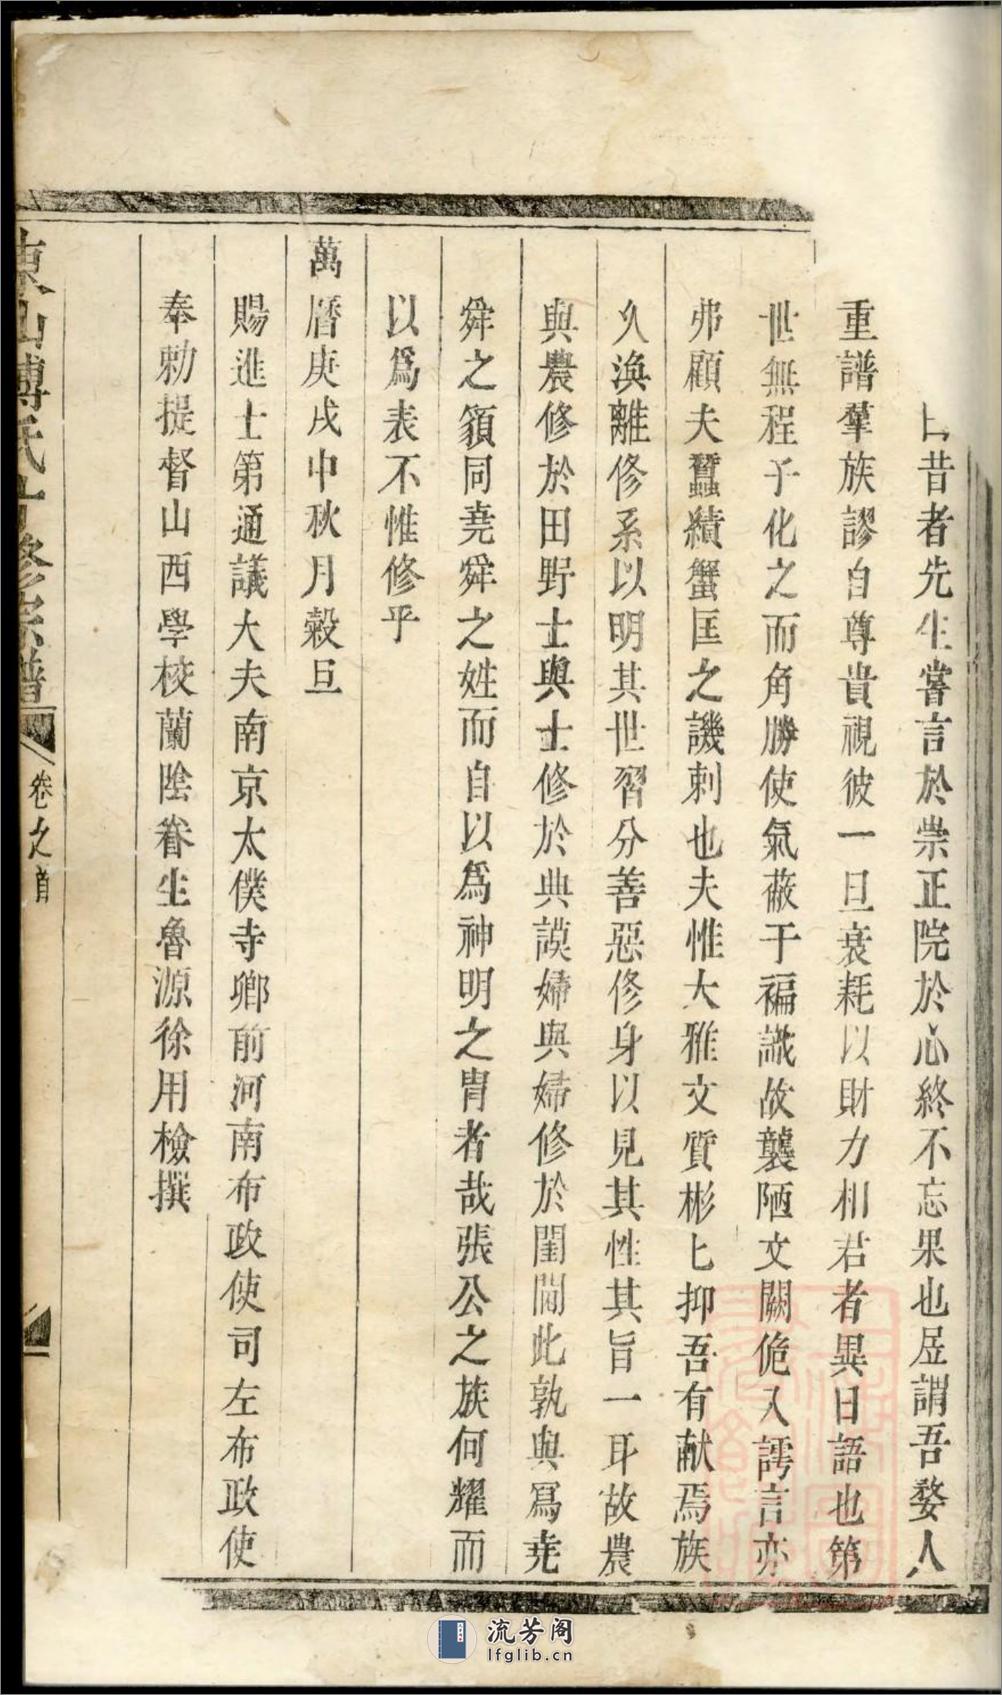 昔者先生嘗言於崇正院於心終不忘果也居謂吾婺人
重譜羣族謬自尊貴視彼一旦衰耗以財力相君者異日語也第
世無程子化之而角勝使氣蔽于褊識故襲陋文闕佹入誇言亦
弗顧夫蠶績蟹匡之譏刺也夫惟大雅文質彬匕抑吾有献焉族
久渙離修系以明其世習分善惡修身以見其性其旨一耳故農
與農修於田野士與士修於典謨婦與婦修於閨閫此孰與冩尭
舜之顙同尭舜之姓而自以爲神明之胄者哉張公之族何耀而
以爲表不惟修乎
萬曆庚戌中秋月穀旦
賜進士第通議大夫南京太僕寺卿前河南布政使司左布政使
奉勅提督山西學校蘭陰眷生魯源徐用檢撰
東山傅氏十修宗譜
卷之首
流芳阁
lfglib.cn